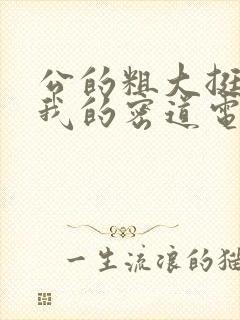 公的粗大挺
我的密道電
一生流浪的猫